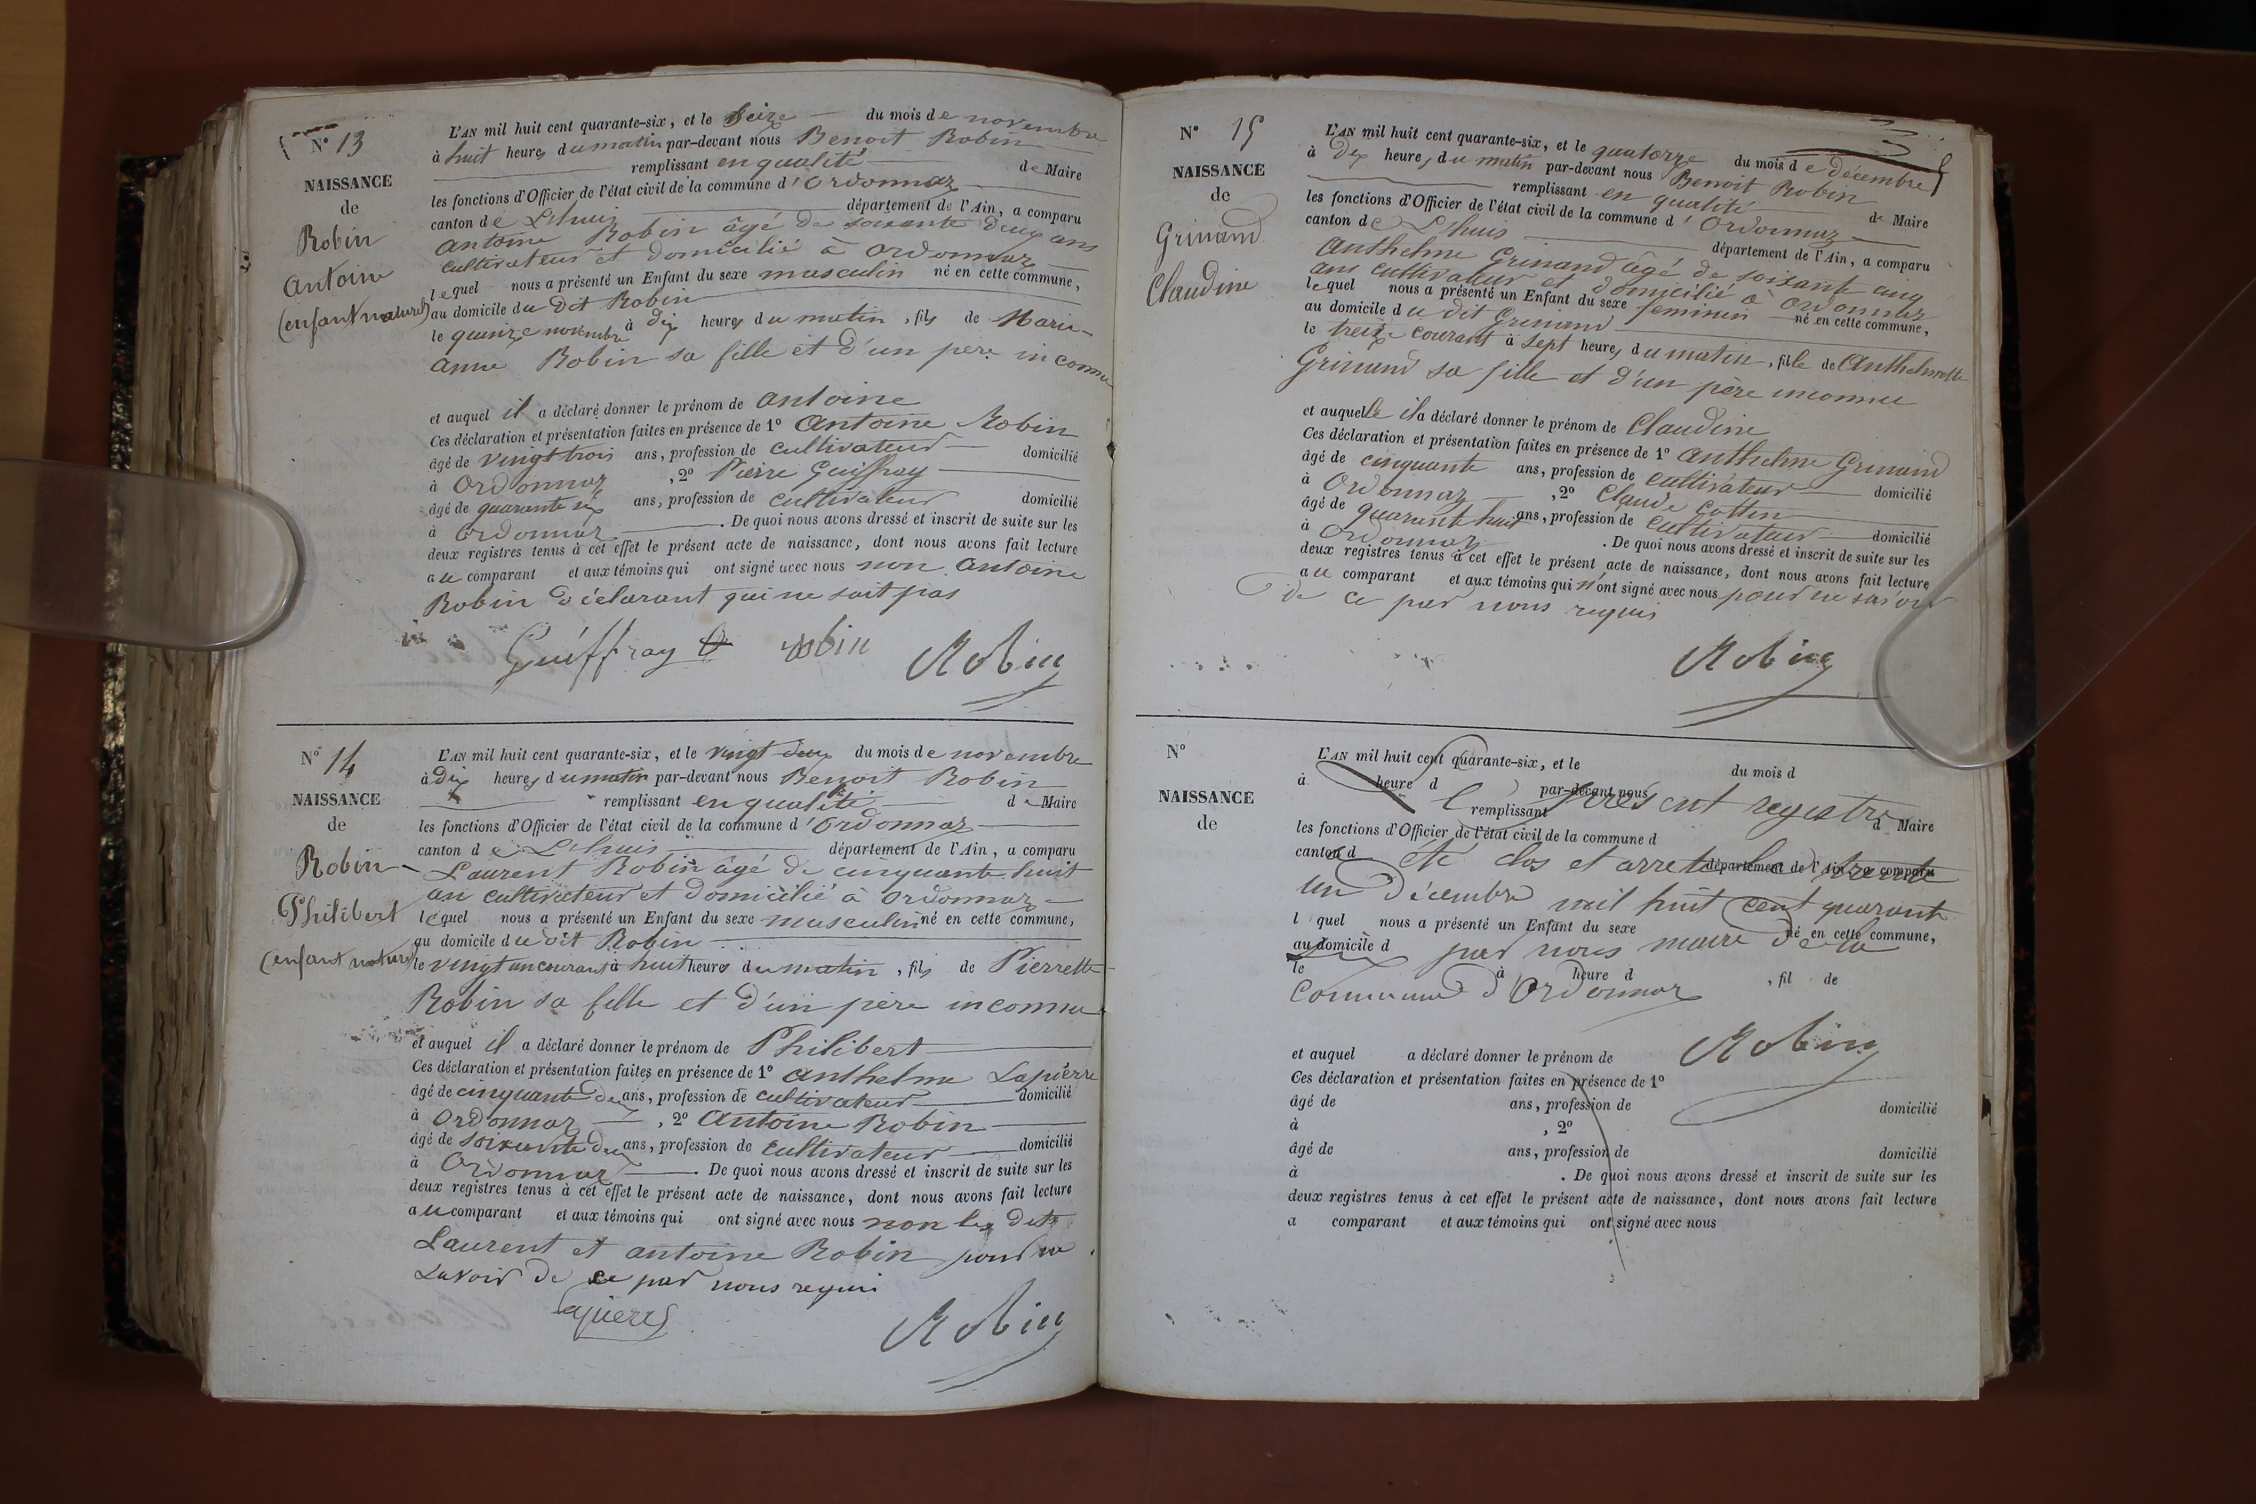 N° 13
NAISSANCE
de
Robin
Antoine
(enfant naturel)
L'AN mil huit cent quarante-six, et le seize du mois de novembre
à huit heures du matin par-devant nous Benoit Robin
remplissant en qualité de Maire
les fonctions d'Officier de l'état civil de la commune d'Ordonnaz
canton de L'huis département de l'Ain, a comparu
Antoine Robin âgé de soixante deux ans
cultivateur et domicilié à Ordonnaz
lequel nous a présenté un Enfant du sexe masculin né en cette commune,
au domicile du dit Robin
le quinze novembre à dix heures du matin, fils de Marie-
anne Robin sa fille et d'un père inconnu
et auquel il a déclaré donner le prénom de Antoine
Ces déclaration et présentation faites en présence de 1° Antoine Robin
âgé de vingt trois ans, profession de cultivateur domicilié
à Ordonnaz, 2° Pierre Guiffray
âgé de quarante six ans, profession de cultivateur domicilié
à Ordonnaz. De quoi nous avons dressé et inscrit de suite sur les
deux registres tenus à cet effet le présent acte de naissance, dont nous avons fait lecture
au comparant et aux témoins qui ont signé avec nous non Antoine
Robin déclarant qui ne sait pas
Guiffray Robin Robin
N° 14
NAISSANCE
de
Robin
Philibert
(enfant naturel)
L'AN mil huit cent quarante-six, et le vingt deux du mois de novembre
à dix heures du matin par-devant nous Benoit Robin
remplissant en qualité de Maire
les fonctions d'Officier de l'état civil de la commune d'Ordonnaz
canton de L'huis département de l'Ain, a comparu
Laurent Robin âgé de cinquante huit
an cultivateur et domicilié à Ordonnaz
lequel nous a présenté un Enfant du sexe masculin né en cette commune,
au domicile du dit Robin
le vingt un courant à huit heures du matin, fils de Pierrette
Robin sa fille et d'un père inconnu
et auquel il a déclaré donner le prénom de Philibert
Ces déclaration et présentation faites en présence de 1° Anthelme Lapierre
âgé de cinquante deux ans, profession de cultivateur domicilié
à Ordonnaz, 2° Antoine Robin
âgé de soixante deux ans, profession de cultivateur domicilié
à Ordonnaz. De quoi nous avons dressé et inscrit de suite sur les
deux registres tenus à cet effet le présent acte de naissance, dont nous avons fait lecture
au comparant et aux témoins qui ont signé avec nous non les dits
Laurent et antoine Robin pour ne
savoir de ce par nous requis
Robin
N° 15
NAISSANCE
de
Grinand
Claudine
L'AN mil huit cent quarante-six, et le quatorze du mois de décembre
à dix heures du matin par-devant nous Benoit Robin
remplissant en qualité de Maire
les fonctions d'Officier de l'état civil de la commune d'Ordonnaz
canton de L'huis département de l'Ain, a comparu
Anthelme Grinand âgé de soixant cinq
ans cultivateur et domicilié à Ordonnaz
lequel nous a présenté un Enfant du sexe feminin né en cette commune,
au domicile du dit Grinand
le treize courant à sept heures du matin, fille de Anthelmette
Grinand sa fille et d'un père inconnu
et auquelle il a déclaré donner le prénom de Claudine
Ces déclaration et présentation faites en présence de 1° Anthelme Grinand
âgé de cinquante ans, profession de cultivateur domicilié
à Ordonnaz, 2° Claude Cottin
âgé de quarante huit ans, profession de cultivateur domicilié
à Ordonnaz. De quoi nous avons dressé et inscrit de suite sur les
deux registres tenus à cet effet le présent acte de naissance, dont nous avons fait lecture
au comparant et aux témoins qui n'ont signé avec nous pour ne savoir
de ce par nous requis
Robin
N°
NAISSANCE
de
L'AN mil huit cent quarante-six, et le du mois d
à heure d par-devant nous
le présent registre
remplissant d Maire
les fonctions d'Officier de l'état civil de la commune d
canton d département de l'Ain, a comparu
été clos et arreté le trente
un décembre mil huit cent quarante
l quel nous a présenté un Enfant du sexe né en cette commune,
au domicile d
six par nous maire de la
le à heure d, fil de
commune d'Ordonnaz
Robin
et auquel a déclaré donner le prénom de
Ces déclaration et présentation faites en présence de 1°
âgé de ans, profession de domicilié
à , 2°
âgé de ans, profession de domicilié
à . De quoi nous avons dressé et inscrit de suite sur les
deux registres tenus à cet effet le présent acte de naissance, dont nous avons fait lecture
a comparant et aux témoins qui ont signé avec nous